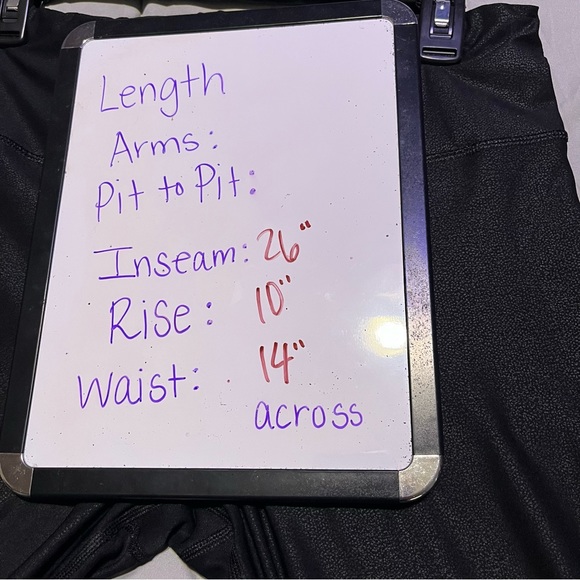 Length
Arms:
Pit to Pit:
Inseam: 26"
Rise: 10"
Waist: 14"
across